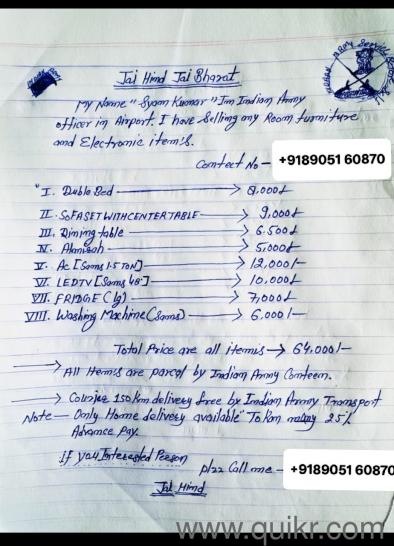 Jai Hind Jai Bharat
My Name "Syam Kumar" I'm Indian Army
officer in Airport. I have Selling my Room furniture
and Electronic item's.
Contect No - +9189051 60870
"I. Duble Bed → 8,000/-
II. SOFASET WITH CENTER TABLE → 9,000/-
III. Dining table → 6.500/-
IV. Almirah → 5,000/-
V. Ac [Sams 1.5 TON] → 12,000/-
VI. LED TV [Sams 48"] → 10,000/-
VII. FRIDGE (lg) → 7,000/-
VIII. Washing Machine (Sams) → 6,000/-
Total Price are all item's → 64,000/-
→ All Item's are parcel by Indian Army Conteen.
→ 150 Km delivery free by Indian Army Transport
Note - Only Home delivery available" 25%
Advance Pay.
if you Interested Person
plzz Call me - +9189051 60870
Jai Hind
www.quikr.com